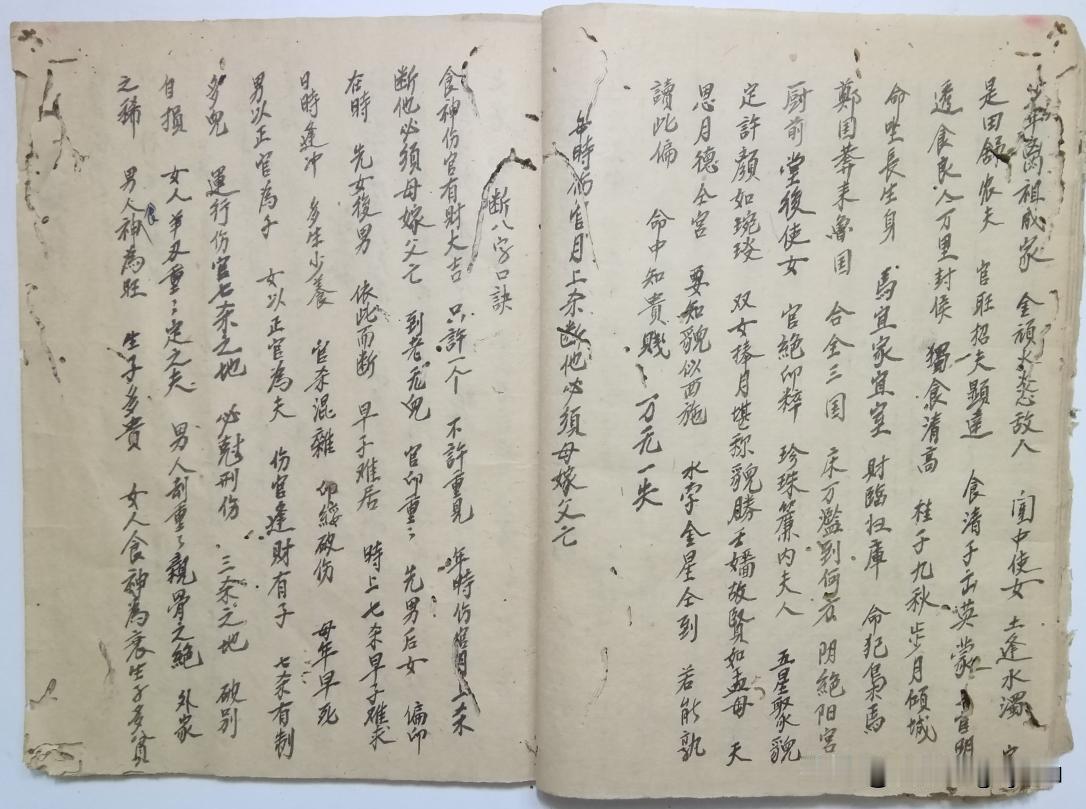 少年离祖成家 金顽水柔敌人 闺中使女 土逢水濁 定
是田舒农夫 官旺招夫顕達 食清子云英蒙 官明
透食良人万里封侯 獨食清高 桂子九秋步月傾城
命坐長生身 馬宜家宜室 財臨归庫 命犯梟馬
鄭国莽来魯国 合全三国 床万濫到何 阴绝阳宫
厨前堂後使女 官绝印粹 珍珠簾内夫人 五星聚貌
定許顔如琬琰 双女捧月堪称貌勝士嬌故賢如孟母 天
思月德仝宫 要知貌似西施 水字金星仝到 若能熟
讀此偏 命中知貴賤 万无一失
年時伤官月上杀断他必須母嫁父亡
断八字口訣
食神伤官有財大吉 只許一个 不許重見 年時伤官月上杀
断他必須母嫁父亡 到老无兒 官印重々 先男后女 偏印
在時 先女後男 依此而断 早子难居 時上七杀早子难夫
日時逢冲 多生少養 官杀混雜 印綬破伤 母年早死
男以正官為子 女以正官為夫 伤官逢財有子 七杀有制
多兒 運行伤官七杀之地 必尅刑伤 三杀之地 破别
自損 女人羊刃重々定之夫 男人刦重々親骨之绝 外家
之稀 男人食神為旺 生子多貴 女人食神為衰生子多貧